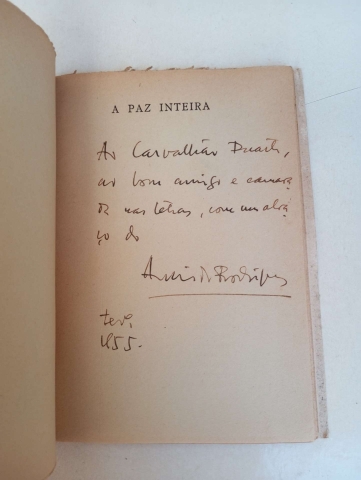 A PAZ INTEIRA
Ao Carvalhão Duarte,
ao bom amigo e camara
da nas letras, com um abra
ço do
Armindo Rodrigues
fev.
1955.